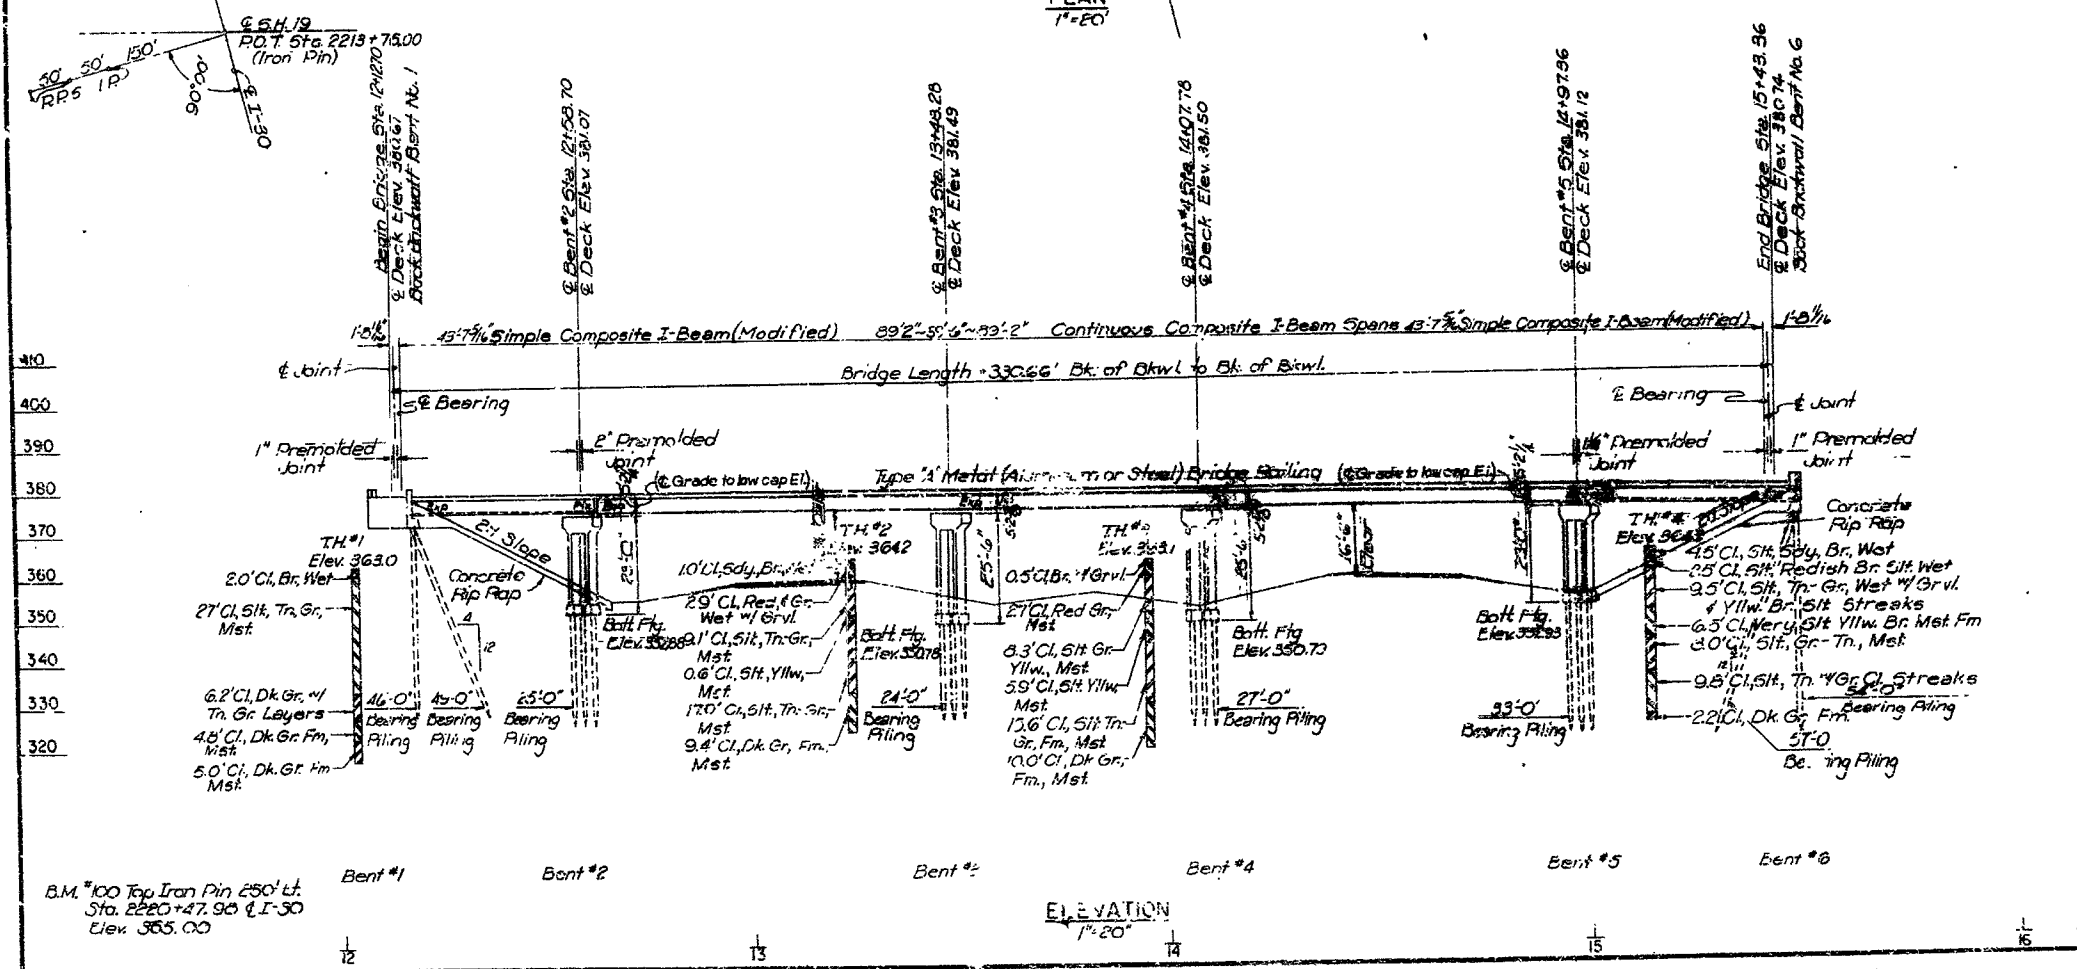 PLAN
1"=20'
℄ S.H. 19
P.O.T. Sta. 2213+75.00
(Iron Pin)
50' 50' 150'
R.P.S I.P.
90°00'
℄ I-30
Begin Bridge Sta. 12+12.70
℄ Deck Elev. 380.67
Back Backwall Bent No. 1
℄ Bent #2 Sta. 12+58.70
℄ Deck Elev. 381.07
℄ Bent #3 Sta. 13+48.28
℄ Deck Elev. 381.49
℄ Bent #4 Sta. 14+07.78
℄ Deck Elev. 381.50
℄ Bent #5 Sta. 14+97.36
℄ Deck Elev. 381.12
End Bridge Sta. 15+43.36
℄ Deck Elev. 380.74
Back Backwall Bent No. 6
1'-8 1/16" 43'-7 5/16" Simple Composite I-Beam (Modified) 89'2"~59'-6"~89'-2" Continuous Composite I-Beam Spans 43'-7 5/16" Simple Composite I-Beam (Modified) 1'-8 1/16
Bridge Length = 330.66' Bk. of Bkwl. to Bk. of Bkwl.
℄ Joint
℄ Bearing
℄ Bearing
℄ Joint
1" Premolded
Joint
2" Premolded
Joint
Premolded
Joint
1" Premolded
Joint
(℄ Grade to low cap El.)
Type "A" Metal (Aluminum or Steel) Bridge Railing
(℄ Grade to low cap El.)
410
400
390
380
370
360
350
340
330
320
Exp
Exp
2:1 Slope
2:1 Slope
Concrete
Rip Rap
Concrete
Rip Rap
25'-6"
25'-6"
16'-6"
23'-0"
T.H. #1
Elev. 363.0
2.0' Cl., Br., Wet
27' Cl., Slt., Tn. Gr.,
Mst.
6.2' Cl., Dk. Gr., w/
Tn. Gr. Layers
4.8' Cl., Dk. Gr. Fm,
Mst.
5.0' Cl., Dk. Gr. Fm
Mst.
4
12
46'-0"
Bearing
Piling
45'-0"
Bearing
Piling
25'-0"
Bearing
Piling
Bott. Ftg.
Elev.
T.H. #2
364.2
1.0' Cl., Sdy., Br.,
2.9' Cl., Red, & Gr.
Wet w/ Grvl.
9.1' Cl., Slt., Tn.-Gr.,
Mst.
0.6' Cl., Slt., Yllw.,
Mst.
17.0' Cl., Slt., Tn.-Gr.,
Mst.
9.4' Cl., Dk. Gr., Fm.,
Mst.
Bott. Ftg.
Elev. 350.78
24'-0"
Bearing
Piling
T.H.
Elev. 363.1
0.5' Cl., Br. w/ Grvl.
2.7' Cl., Red Gr.,
Mst.
8.3' Cl., Slt. Gr.
Yllw., Mst.
5.9' Cl., Slt. Yllw.,
Mst.
Cl., Slt. Tn.
Gr., Fm., Mst.
10.0' Cl., Dk. Gr.,
Fm., Mst.
Bott. Ftg.
Elev. 350.73
27'-0"
Bearing Piling
Bott. Ftg.
Elev.
33'-0"
Bearing Piling
T.H.
Elev.
4.5' Cl., Slt., Sdy., Br., Wet
2.5' Cl., Slt., Redish Br. Slt. Wet
9.5' Cl., Slt., Tn.-Gr., Wet w/ Grvl.
& Yllw. Br. Slt Streaks
6.5' Cl., Very Slt Yllw. Br. Mst Fm
8.0' Cl., Slt., Gr.-Tn., Mst.
9.8' Cl., Slt., Tn. w/ Gr. Cl. Streaks
2.2' Cl., Dk. Gr. Fm.
Bearing Piling
57'-0
Bearing Piling
Bent #1
Bent #2
Bent
Bent #4
Bent #5
Bent #6
B.M. #100 Top Iron Pin 250' Lt.
Sta. 2220+47.98 ℄ I-30
Elev. 365.00
ELEVATION
1"=20"
12
13
14
15
16